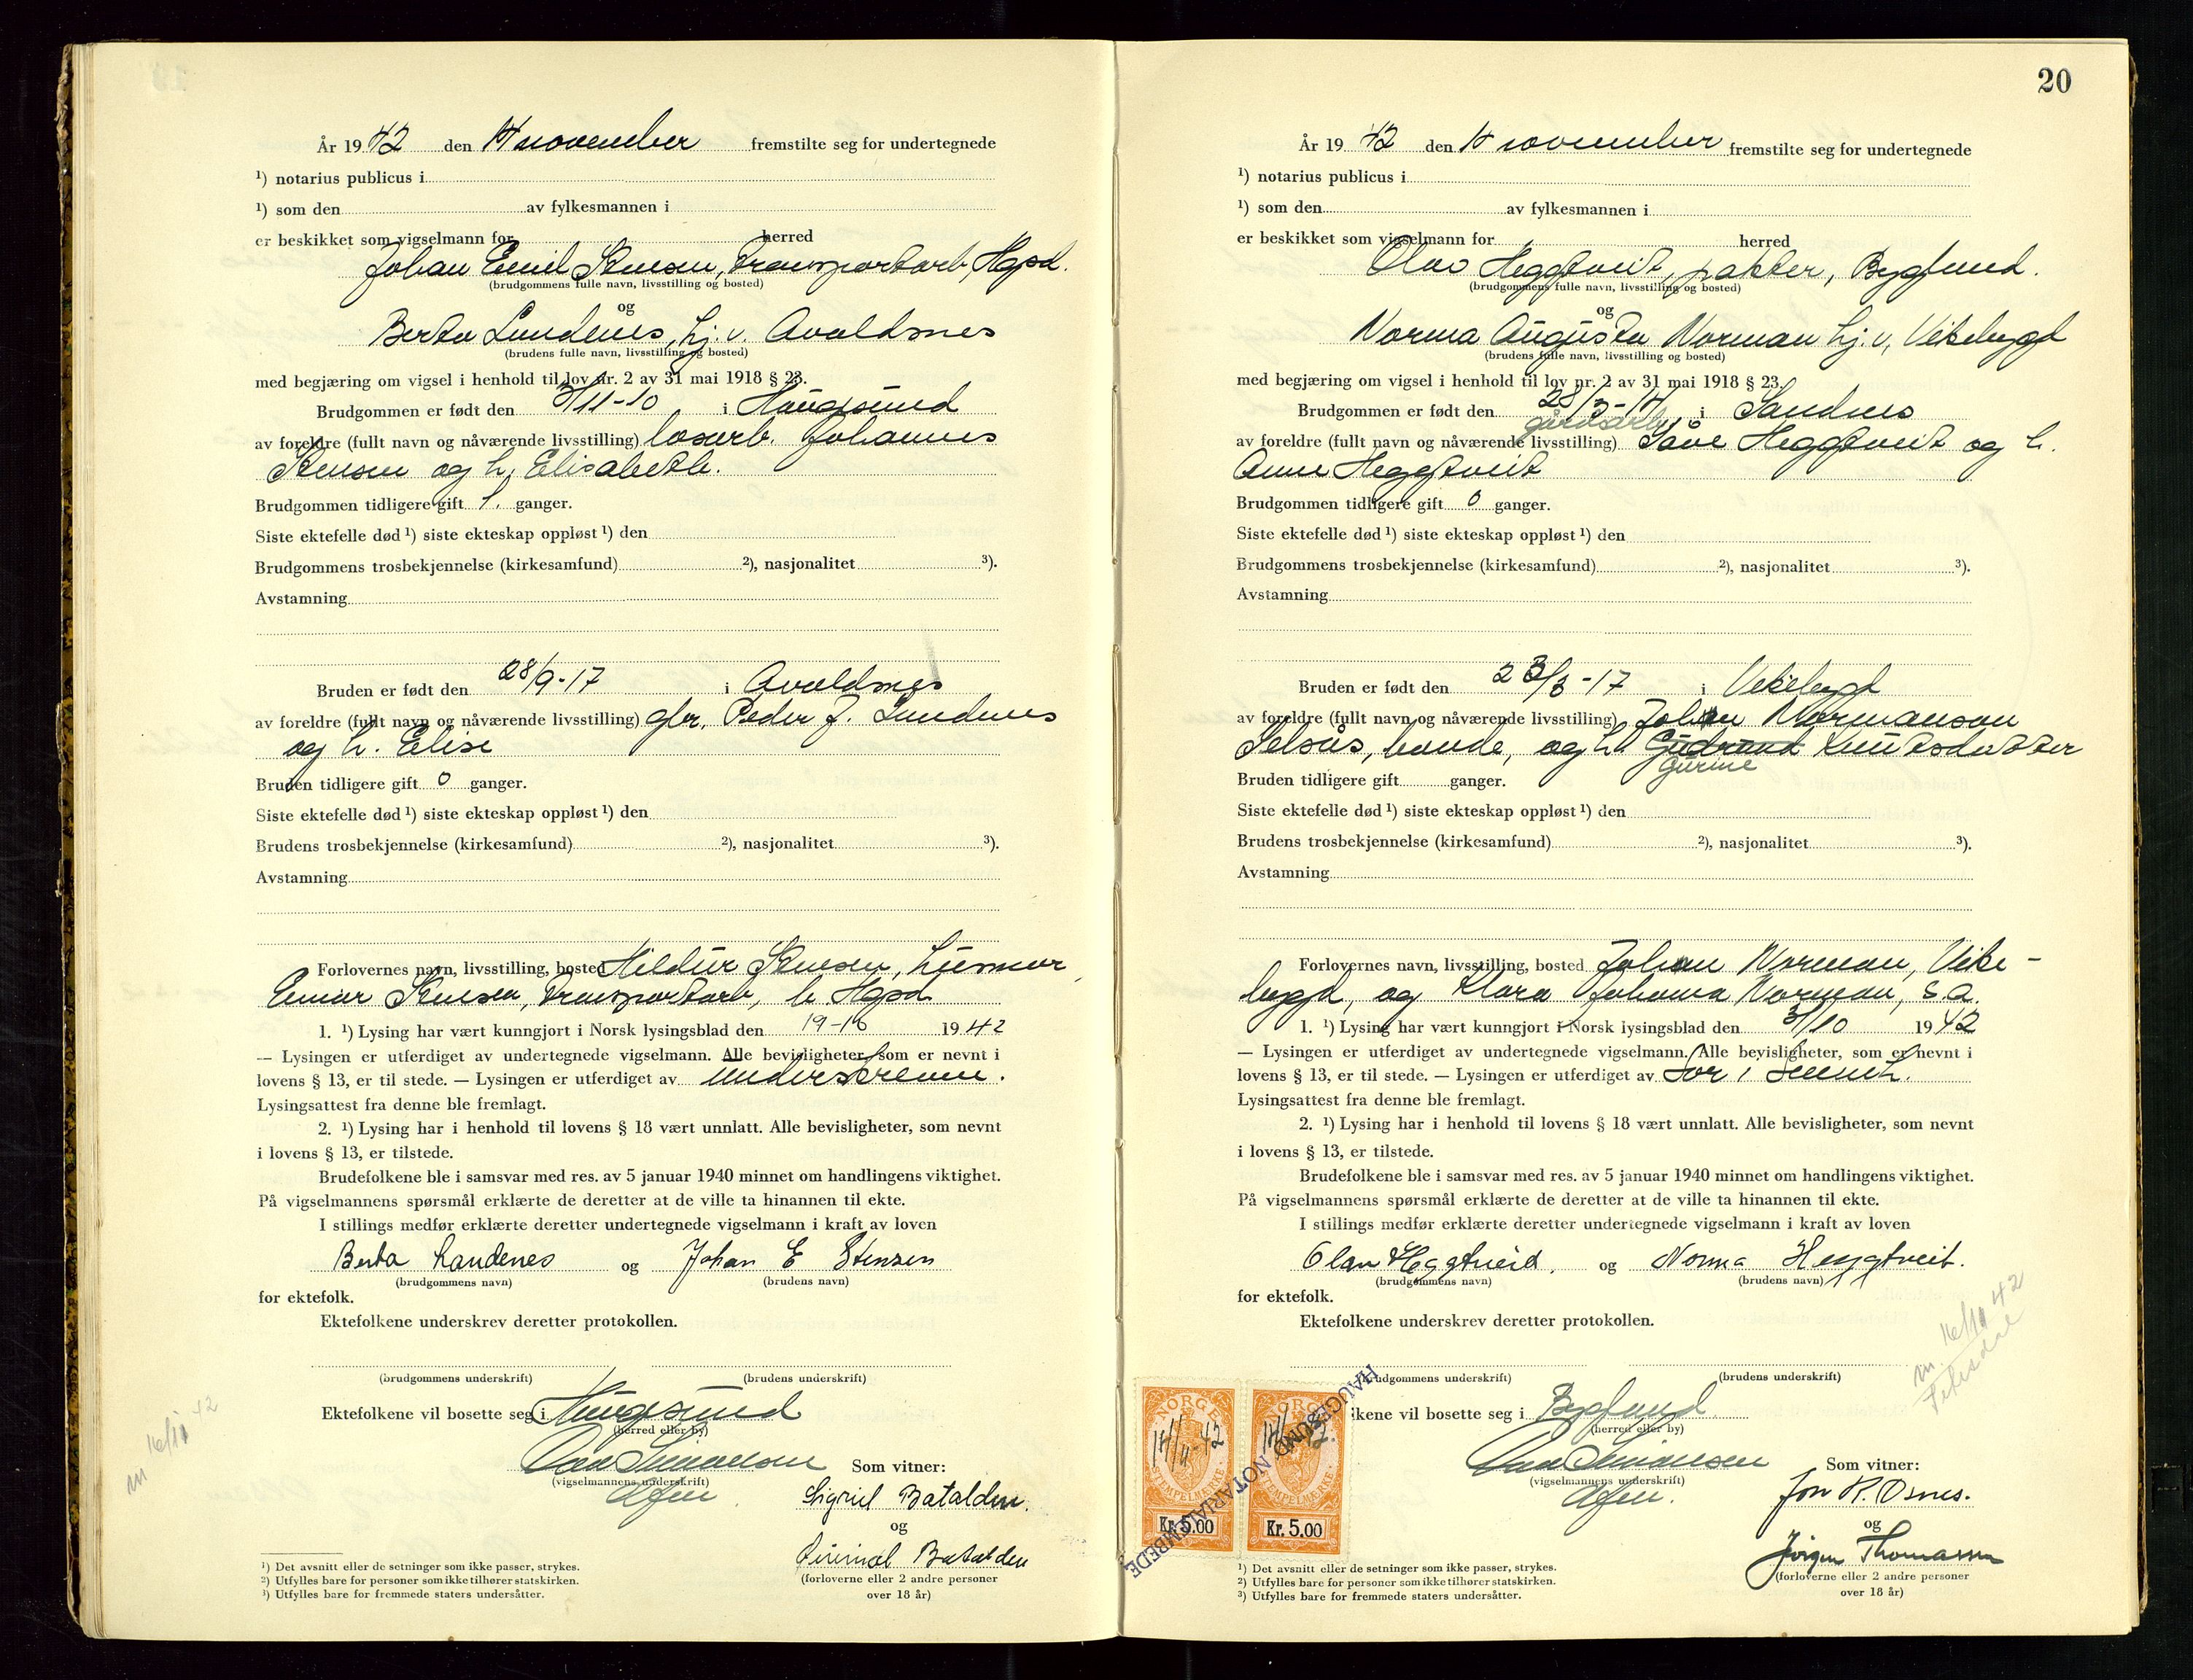 År 19 42 den 14 november fremstilte seg for undertegnede
¹) notarius publicus i
¹) som den av fylkesmannen i
er beskikket som vigselmann for herred
Johan Emil Stensen, Transportarb, Hgsd.
(brudgommens fulle navn, livsstilling og bosted)
og
Berta Landenes, hj. v. Avaldsnes
(brudens fulle navn, livsstilling og bosted)
med begjæring om vigsel i henhold til lov nr. 2 av 31 mai 1918 § 23.
Brudgommen er født den 3/11-10 i Haugesund
av foreldre (fullt navn og nåværende livsstilling) losarb. Johannes
Stensen og h. Elisabeth.
Brudgommen tidligere gift 1. ganger.
Siste ektefelle død ¹) siste ekteskap oppløst ¹) den
Brudgommens trosbekjennelse (kirkesamfund) ²), nasjonalitet ³).
Avstamning
Bruden er født den 28/9-17 i Avaldsnes
av foreldre (fullt navn og nåværende livsstilling) gbr. Peder J. Landenes
og h. Elise
Bruden tidligere gift 0 ganger.
Siste ektefelle død ¹) siste ekteskap oppløst ¹) den
Brudens trosbekjennelse (kirkesamfund) ²), nasjonalitet ³).
Avstamning
Forlovernes navn, livsstilling, bosted Hildur Stensen, husmor,
Einar Stensen, Transportarb, b. Hgsd
1. ¹) Lysing har vært kunngjort i Norsk lysingsblad den 19-10 19 42
— Lysingen er utferdiget av undertegnede vigselmann. Alle bevisligheter, som er nevnt i
lovens § 13, er til stede. — Lysingen er utferdiget av underskrevne.
Lysingsattest fra denne ble fremlagt.
2. ¹) Lysing har i henhold til lovens § 18 vært unnlatt. Alle bevisligheter, som nevnt
i lovens § 13, er tilstede.
Brudefolkene ble i samsvar med res. av 5 januar 1940 minnet om handlingens viktighet.
På vigselmannens spørsmål erklærte de deretter at de ville ta hinannen til ekte.
I stillings medfør erklærte deretter undertegnede vigselmann i kraft av loven
Berta Landenes og Johan E Stensen
(brudgommens navn) (brudens navn)
for ektefolk.
Ektefolkene underskrev deretter protokollen.
(brudgommens underskrift) (brudens underskrift)
Ektefolkene vil bosette seg i Haugesund
(herred eller by)
m 16/11 42
(vigselmannens underskrift)
Som vitner:
Sigrid Batalden.
og
Batalden
(forloverne eller 2 andre personer
over 18 år)
¹) Det avsnitt eller de setninger som ikke passer, strykes.
²) Utfylles bare for personer som ikke tilhører statskirken.
³) Utfylles bare for fremmede staters undersåtter.
20
År 19 42 den 14 november fremstilte seg for undertegnede
¹) notarius publicus i
¹) som den av fylkesmannen i
er beskikket som vigselmann for herred
Olav Heggtveit, pakker, Bygland.
(brudgommens fulle navn, livsstilling og bosted)
og
Norma Augusta Norman hj. v, Vikebygd
(brudens fulle navn, livsstilling og bosted)
med begjæring om vigsel i henhold til lov nr. 2 av 31 mai 1918 § 23.
Brudgommen er født den 28/3-14 i Sandnes
gårdsarb.
av foreldre (fullt navn og nåværende livsstilling) Såve Heggtveit og h.
Anne Heggtveit
Brudgommen tidligere gift 0 ganger.
Siste ektefelle død ¹) siste ekteskap oppløst ¹) den
Brudgommens trosbekjennelse (kirkesamfund) ²), nasjonalitet ³).
Avstamning
Bruden er født den 23/3-17 i Vikebygd
av foreldre (fullt navn og nåværende livsstilling) Johan Normanson
Selsås, bonde, og h. Gudrund Knutsdatter
Gurine
Bruden tidligere gift ganger.
Siste ektefelle død ¹) siste ekteskap oppløst ¹) den
Brudens trosbekjennelse (kirkesamfund) ²), nasjonalitet ³).
Avstamning
Forlovernes navn, livsstilling, bosted Johan Norman, Vike-
bygd, og Klara Johanna Norman, s.a.
1. ¹) Lysing har vært kunngjort i Norsk lysingsblad den 3/10 19 42
— Lysingen er utferdiget av undertegnede vigselmann. Alle bevisligheter, som er nevnt i
lovens § 13, er til stede. — Lysingen er utferdiget av Sor i
Lysingsattest fra denne ble fremlagt.
2. ¹) Lysing har i henhold til lovens § 18 vært unnlatt. Alle bevisligheter, som nevnt
i lovens § 13, er tilstede.
Brudefolkene ble i samsvar med res. av 5 januar 1940 minnet om handlingens viktighet.
På vigselmannens spørsmål erklærte de deretter at de ville ta hinannen til ekte.
I stillings medfør erklærte deretter undertegnede vigselmann i kraft av loven
Olav Heggtveid. og Norma Heggtveit.
(brudgommens navn) (brudens navn)
for ektefolk.
Ektefolkene underskrev deretter protokollen.
m. 16/11 42
(brudgommens underskrift) (brudens underskrift)
ikene vil bosette seg i Bygland
(herred eller by)
NORGE NORGE
14/11-42 14/11 42.
STEMPELMERKE STEMPELMERKE
Kr. 5.00 Kr. 5.00
HAUGESUND NOTARIALEMBEDE
(vigselmannens underskrift)
Som vitner:
Jon R. Osnes.
og
Jørgen Thomassen
(forloverne eller 2 andre personer
over 18 år)
¹) Det avsnitt eller de setninger som ikke passer, strykes.
²) Utfylles bare for personer som ikke tilhører statskirken.
³) Utfylles bare for fremmede staters undersåtter.